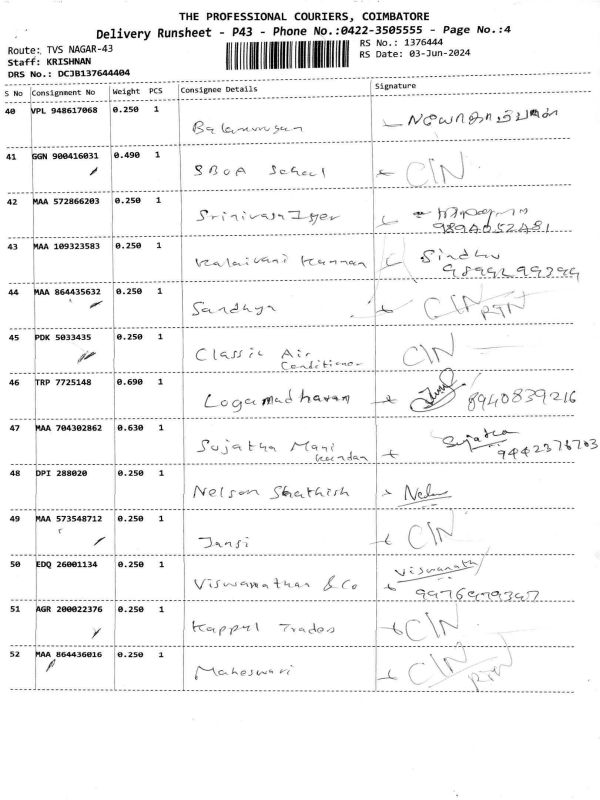 THE PROFESSIONAL COURIERS, COIMBATORE
Delivery Runsheet - P43 - Phone No.:0422-3505555 - Page No.:4
Route: TVS NAGAR-43
RS No.: 1376444
Staff: KRISHNAN
RS Date: 03-Jun-2024
DRS No.: DCJB137644404
S No Consignment No Weight PCS Consignee Details Signature
40 VPL 948617068 0.250 1
Balamurugan
41 GGN 900416031 0.490 1
SBOA School CIN
42 MAA 572866203 0.250 1
Srinivasa Iyer
43 MAA 109323583 0.250 1
Kalaivani Kannan Sindhu
44 MAA 864435632 0.250 1
Sandhya CIN RTN
45 PDK 5033435 0.250 1
Classic Air CIN
Conditioner
46 TRP 7725148 0.690 1
Logamadhavan 8940839216
47 MAA 704302862 0.630 1
Sujatha Mani Sujatha
9442376703
48 DPI 288020 0.250 1
Nelson Shathish
49 MAA 573548712 0.250 1
Jansi CIN
50 EDQ 26001134 0.250 1
Viswanathan & Co Viswanath
51 AGR 200022376 0.250 1
Kappyl Trades CIN
52 MAA 864436016 0.250 1
Maheswari CIN RTN